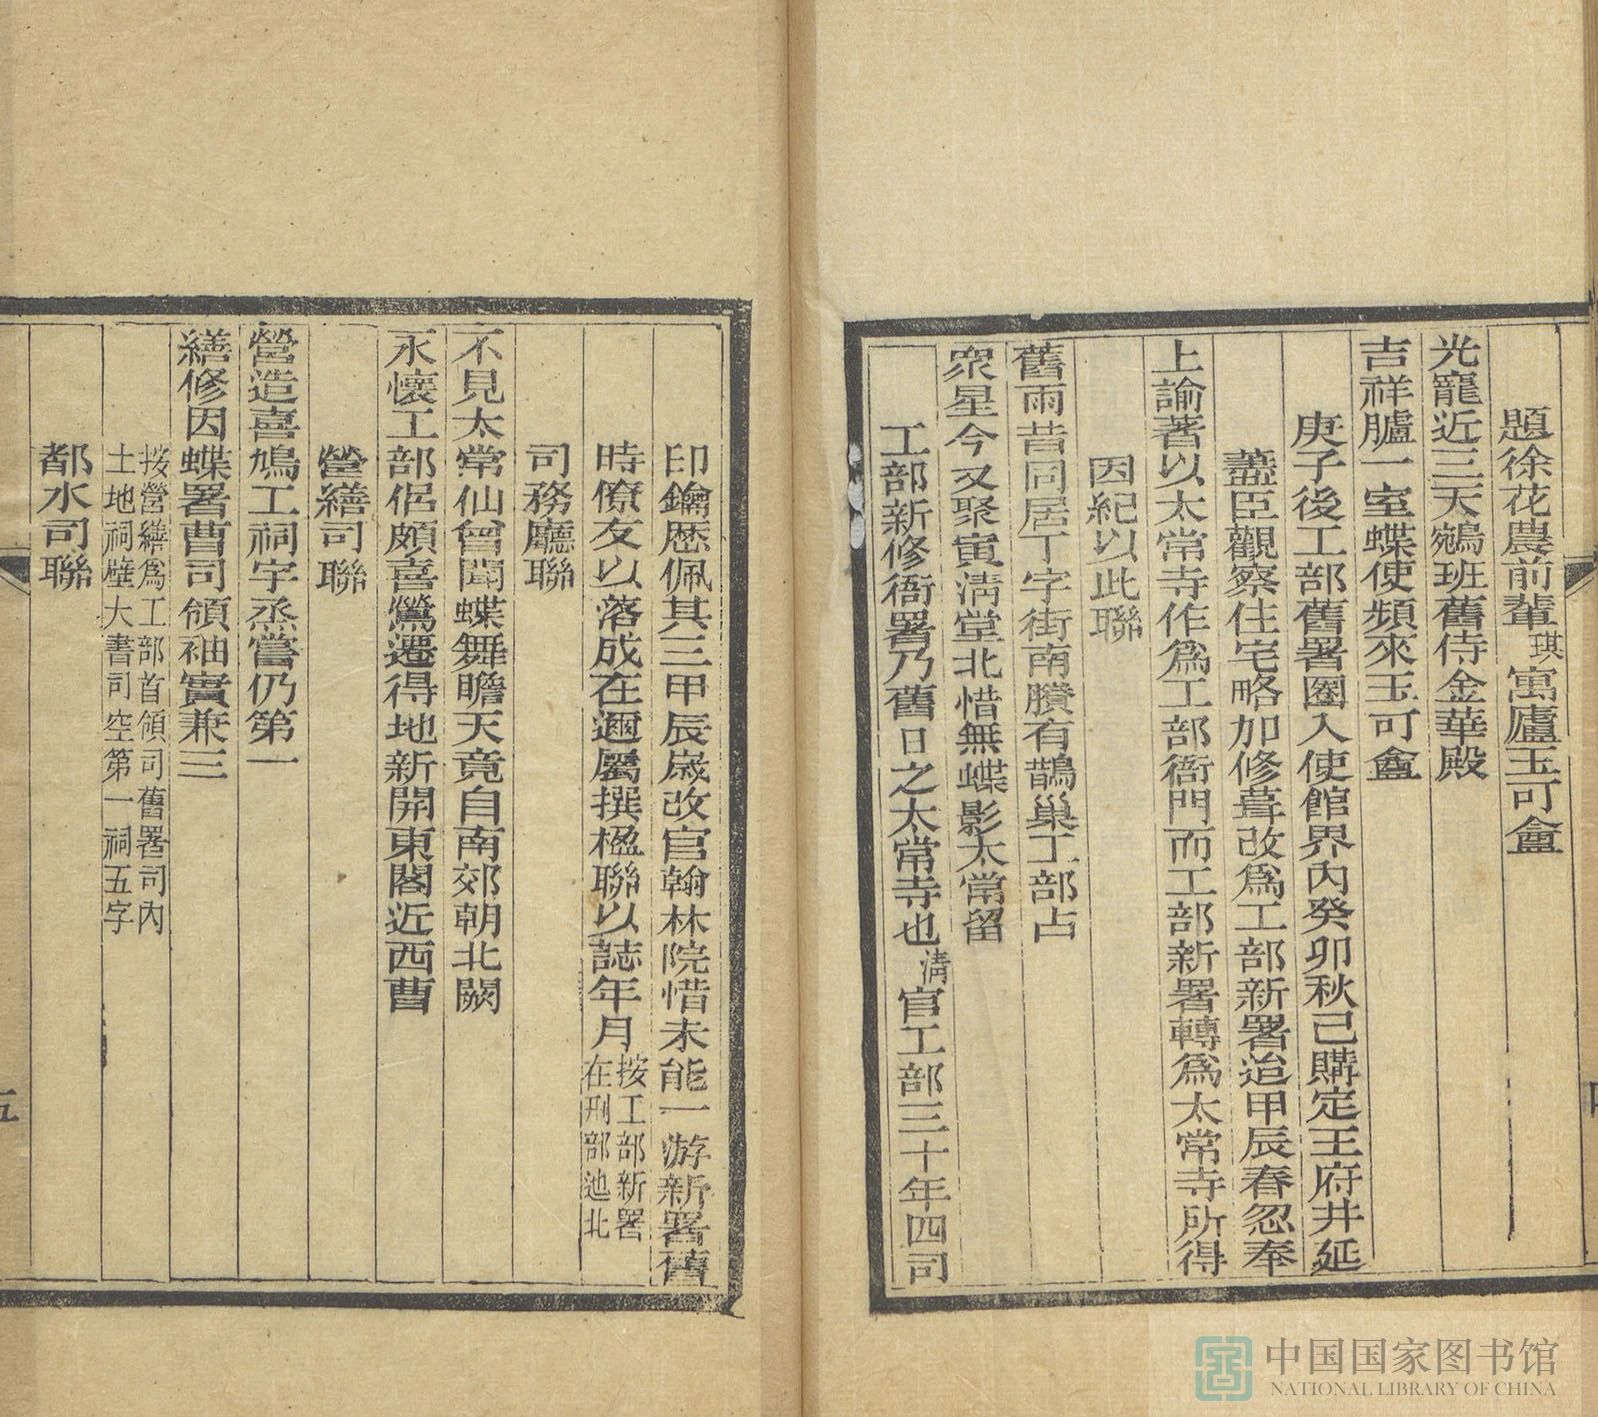 題徐花農前輩琪寓廬玉可盦
光寵近三天鵷班舊侍金華殿
吉祥臚一室蝶使頻來玉可盦
庚子後工部舊署圈入使館界內癸卯秋己購定王府井延
藎臣觀察住宅略加修葺改爲工部新署迨甲辰春忽奉
上諭著以太常寺作爲工部衙門而工部新署轉爲太常寺所得
因紀以此聯
舊雨昔同居丁字街南賸有鵲巢工部占
衆星今又聚寅淸堂北惜無蝶影太常留
工部新修衙署乃舊日之太常寺也淸官工部三十年四司
印鑰歷佩其三甲辰嵗改官翰林院惜未能一游新署舊
時僚友以落成在邇屬撰楹聯以誌年月按工部新署在刑部迤北
司務廳聯
不見太常仙曾聞蝶舞瞻天竟自南郊朝北闕
永懷工部侶頗喜鶯遷得地新開東閣近西曹
營繕司聯
營造喜鳩工祠宇烝嘗仍第一
繕修因蝶署曹司領袖實兼三
按營繕爲工部首領司舊署司內
土地祠壁大書司空第一祠五字
都水司聯
五
中国国家图书馆
NATIONAL LIBRARY OF CHINA